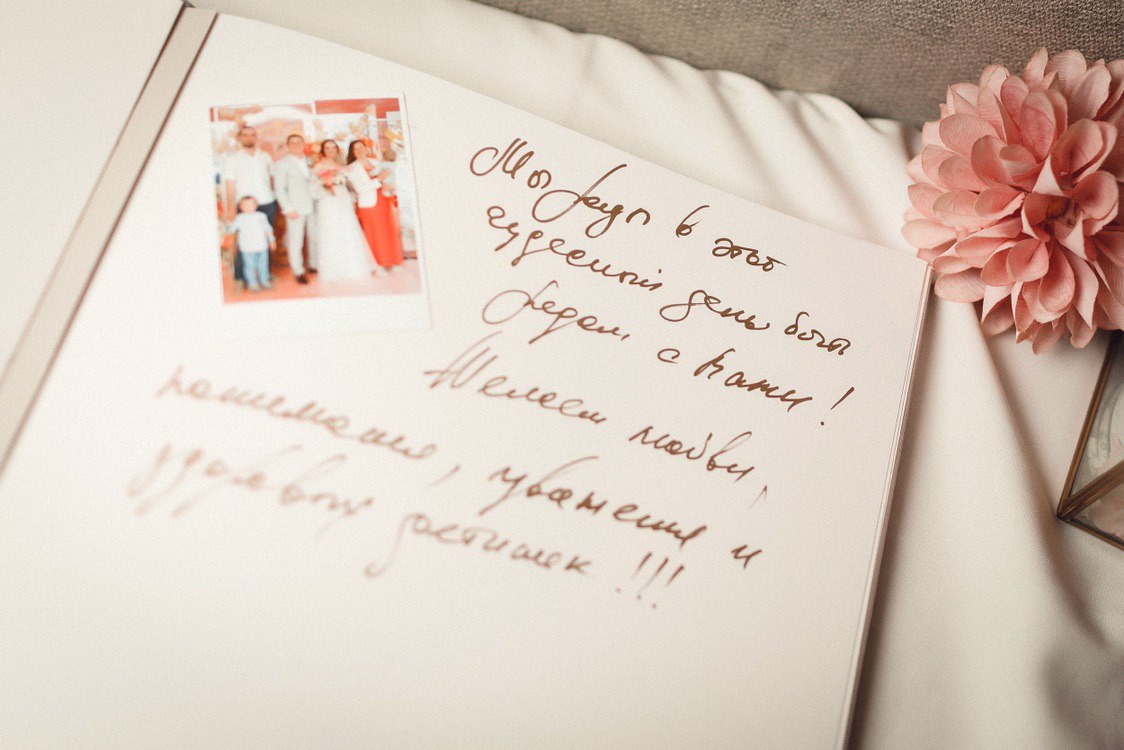 Мы рады в этот
чудесный день быть
рядом с Вами!
Желаем любви,
понимания, уважения и
здоровых детишек!!!